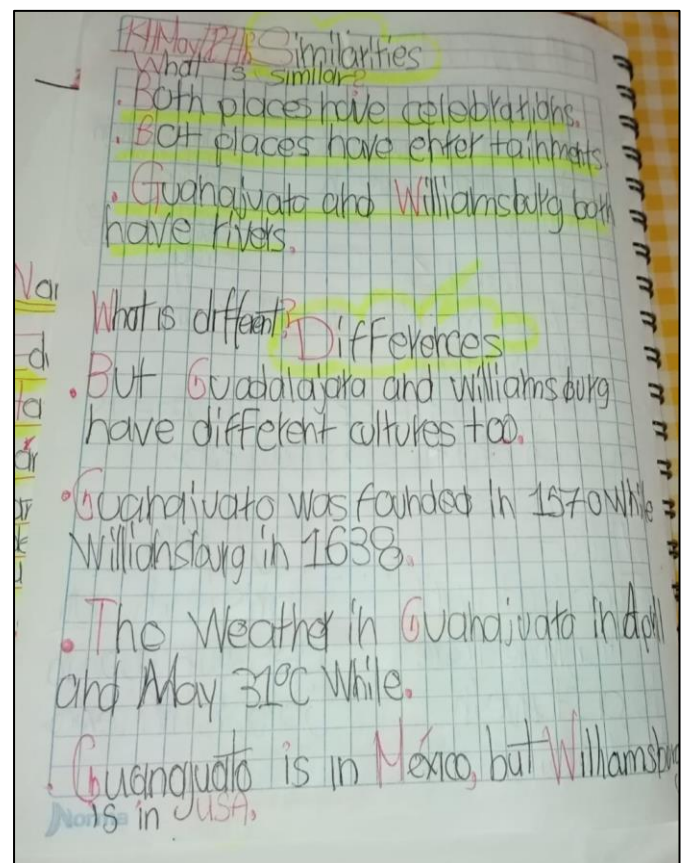 Similarities
What is similar?
. Both places have celebrations.
. Bot places have enter tainments
. Guanajuato and Williamsburg both
have rivers.
What is different?
Differences
. But Guadalajara and williamsburg
have different cultures too.
. Guanajuato was founded in 1570 while
Williansburg in 1638.
. The Weather in Guanajuato in April
and May 31°C While.
. Guanajuato is in México, but Williamsburg
is in USA.
Norma